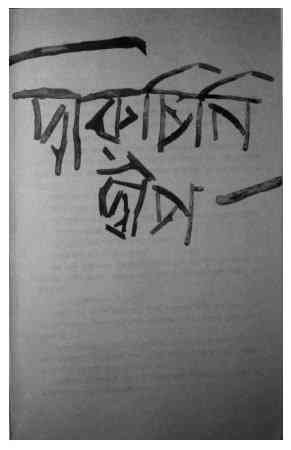 দারুচিনি
দ্বীপ